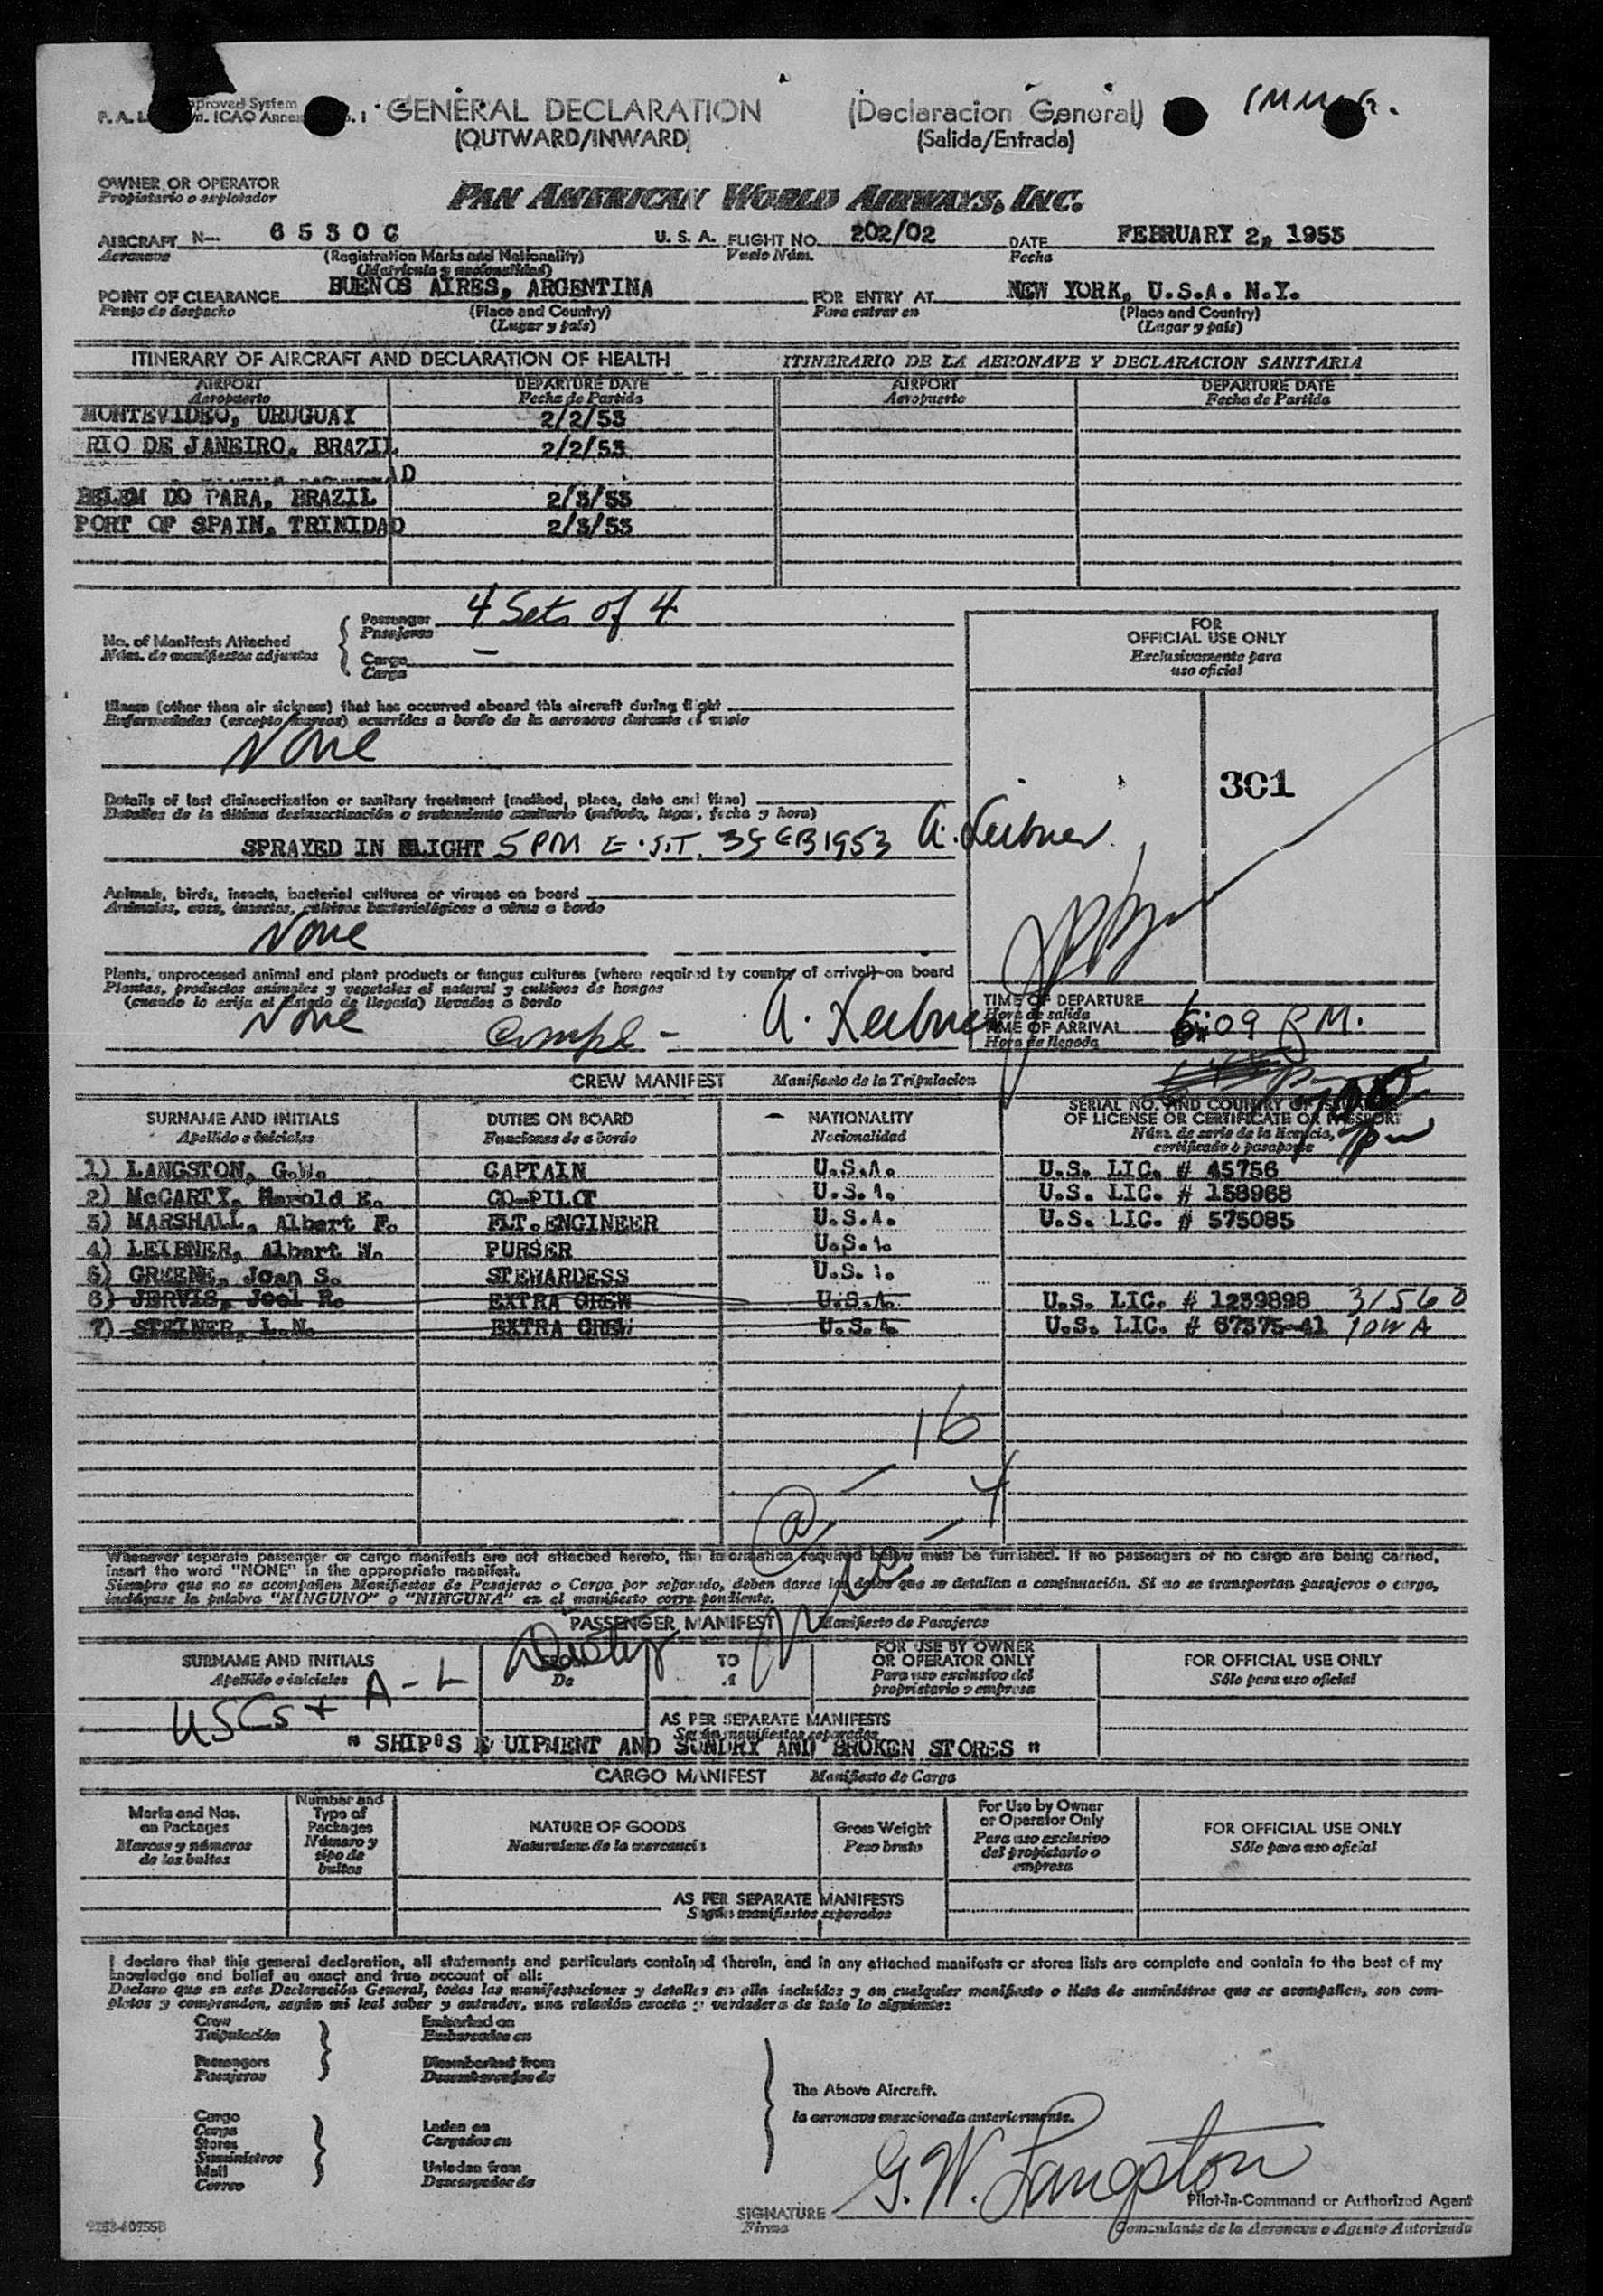 GENERAL DECLARATION (Declaracion General) IMMIG.
(OUTWARD/INWARD) (Salida/Entrada)
OWNER OR OPERATOR
Propietario o explotador
PAN AMERICAN WORLD AIRWAYS, INC.
AIRCRAFT N— 6530C U. S. A. FLIGHT NO. 202/02 DATE FEBRUARY 2, 1953
Aeronave (Registration Marks and Nationality) Vuelo Núm. Fecha
(Matricula y nacionalidad)
POINT OF CLEARANCE BUENOS AIRES, ARGENTINA FOR ENTRY AT NEW YORK, U.S.A. N.Y.
Punto de despacho (Place and Country) Para entrar en (Place and Country)
(Lugar y país) (Lugar y país)
ITINERARY OF AIRCRAFT AND DECLARATION OF HEALTH ITINERARIO DE LA AERONAVE Y DECLARACION SANITARIA
AIRPORT DEPARTURE DATE AIRPORT DEPARTURE DATE
Aeropuerto Fecha de Partida Aeropuerto Fecha de Partida
MONTEVIDEO, URUGUAY 2/2/53
RIO DE JANEIRO, BRAZIL 2/2/53
BELEM DO PARA, BRAZIL 2/3/53
PORT OF SPAIN, TRINIDAD 2/3/53
No. of Manifests Attached
Núm. de manifiestos adjuntos
Passenger 4 Sets of 4
Pasajeros
Cargo —
Carga
FOR
OFFICIAL USE ONLY
Exclusivamente para
uso oficial
301
Illness (other than air sickness) that has occurred aboard this aircraft during flight
Enfermedades (excepto mareos) ocurridas a bordo de la aeronave durante el vuelo
None
Details of last disinsectization or sanitary treatment (method, place, date and time)
Detalles de la última desinsectización o tratamiento sanitario (método, lugar, fecha y hora)
SPRAYED IN FLIGHT 5 PM E.S.T. 3 FEB 1953 A. Leibner
Animals, birds, insects, bacterial cultures or viruses on board
Animales, aves, insectos, cultivos bacteriológicos o virus a bordo
None
Plants, unprocessed animal and plant products or fungus cultures (where required by country of arrival) on board
Plantas, productos animales y vegetales al natural y cultivos de hongos
(cuando lo exija el Estado de llegada) llevados a bordo
None A. Leibner
TIME OF DEPARTURE
Hora de salida
TIME OF ARRIVAL 6:09 PM.
Hora de llegada
CREW MANIFEST Manifiesto de la Tripulacion
SURNAME AND INITIALS DUTIES ON BOARD NATIONALITY SERIAL NO. AND COUNTRY OF
OF LICENSE OR CERTIFICATE OR PASSPORT
Apellido e iniciales Funciones de a bordo Nacionalidad Núm. de serie de la licencia,
certificado o pasaporte
1) LANGSTON, G.W. CAPTAIN U.S.A. U.S. LIC. # 45756
2) McCARTY, Harold E. CO-PILOT U.S.A. U.S. LIC. # 158968
3) MARSHALL, Albert F. FLT. ENGINEER U.S.A. U.S. LIC. # 575085
4) LEIBNER, Albert W. PURSER U.S.A.
5) GREENE, Joan S. STEWARDESS U.S.A.
6) JERVIS, Joel R. EXTRA CREW U.S.A. U.S. LIC. # 1239898 31560
7) STEINER, L.N. EXTRA CREW U.S.A. U.S. LIC. # 67375-41 IOWA
16
4
Whenever separate passenger or cargo manifests are not attached hereto, the information required below must be furnished. If no passengers or no cargo are being carried,
insert the word "NONE" in the appropriate manifest.
Siempre que no se acompañen Manifiestos de Pasajeros o Carga por separado, deben darse los datos que se detallan a continuación. Si no se transportan pasajeros o carga,
inclúyase la palabra "NINGUNO" o "NINGUNA" en el manifiesto correspondiente.
PASSENGER MANIFEST Manifiesto de Pasajeros
SURNAME AND INITIALS TO FOR USE BY OWNER
OR OPERATOR ONLY FOR OFFICIAL USE ONLY
Apellido e iniciales De A Para uso exclusivo del
propietario o empresa Sólo para uso oficial
USCs + A-L
AS PER SEPARATE MANIFESTS
Según manifiestos separados
" SHIP'S E UIPMENT AND SUNDRY AND BROKEN STORES "
CARGO MANIFEST Manifiesto de Carga
Marks and Nos.
on Packages
Marcas y números
de los bultos
Number and
Type of
Packages
Número y
tipo de
bultos
NATURE OF GOODS
Naturaleza de la mercancía
Gross Weight
Peso bruto
For Use by Owner
or Operator Only
Para uso exclusivo
del propietario o
empresa
FOR OFFICIAL USE ONLY
Sólo para uso oficial
AS PER SEPARATE MANIFESTS
Según manifiestos separados
I declare that this general declaration, all statements and particulars contained therein, and in any attached manifests or stores lists are complete and contain to the best of my
knowledge and belief an exact and true account of all:
Declaro que en esta Declaración General, todas las manifestaciones y detalles en ella incluidos y en cualquier manifiesto o lista de suministros que se acompañen, son com-
pletos y comprenden, según mi leal saber y entender, una relación exacta y verdadera de todo lo siguiente:
Crew Embarked on
Tripulación Embarcados en
Passengers Disembarked from
Pasajeros Desembarcados de
The Above Aircraft.
la aeronave mencionada anteriormente.
Cargo Laden on
Carga Cargados en
Stores
Suministros
Mail Unladen from
Correo Descargados de
SIGNATURE G. W. Langston
Firma
Pilot-in-Command or Authorized Agent
Comandante de la Aeronave o Agente Autorizado